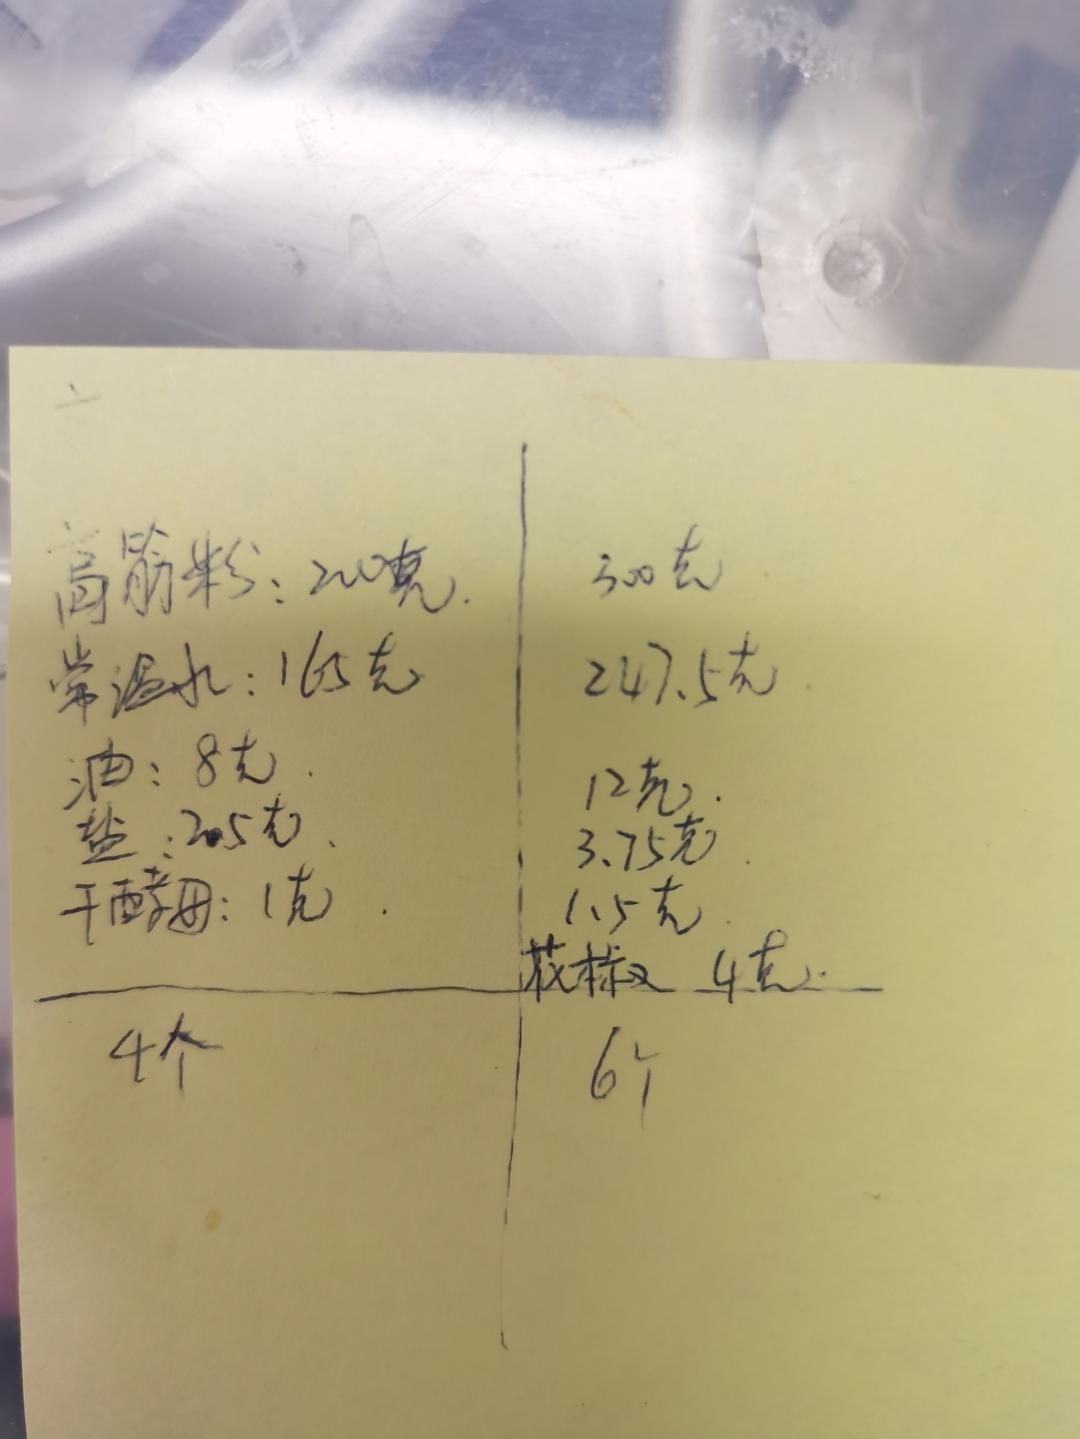 高筋粉：200克． 300克
常温水：165克 247.5克．
油：8克． 12克．
盐：2.5克． 3.75克．
干酵母：1克． 1.5克．
花椒 4克．
4个 6个